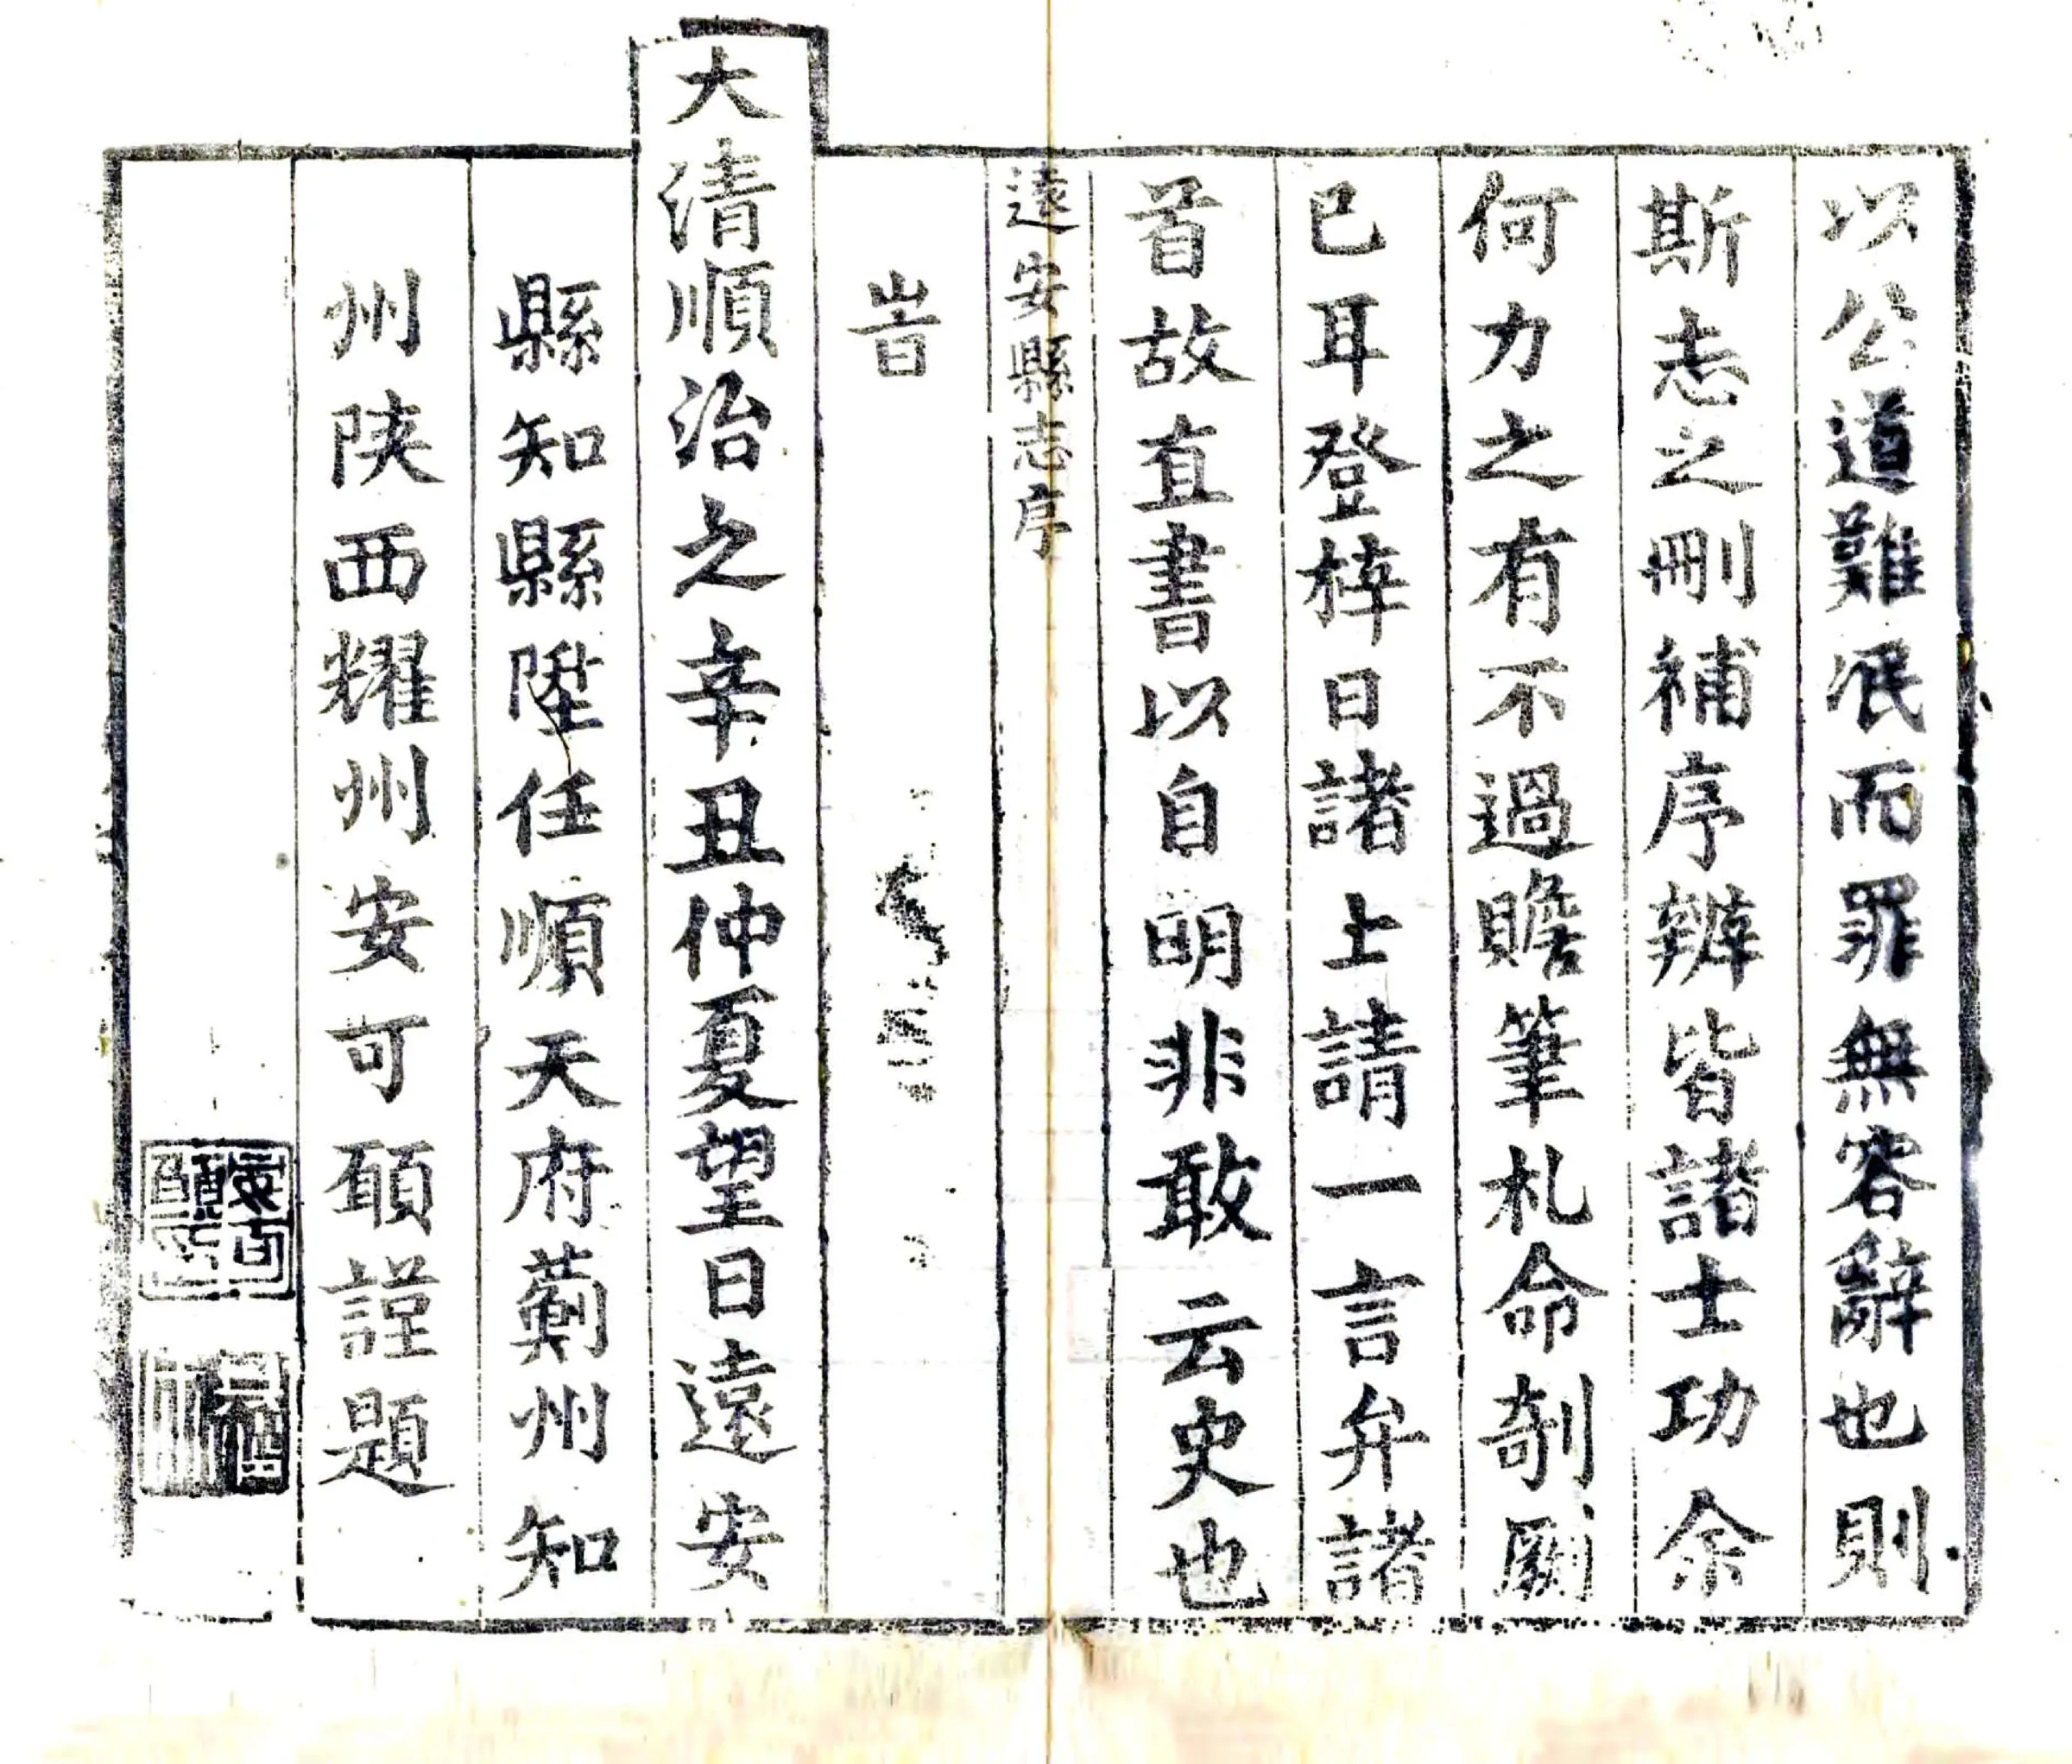 以公道難泯而罪無容辭也則
斯志之刪補序辨皆諸士功余
何力之有不過贍筆札命剞劂
已耳登梓日諸上請一言弁諸
首故直書以自明非敢云史也
遠安縣志序
旹
大清順治之辛丑仲夏望日遠安
縣知縣陞任順天府薊州知
州陕西耀州安可頤謹題